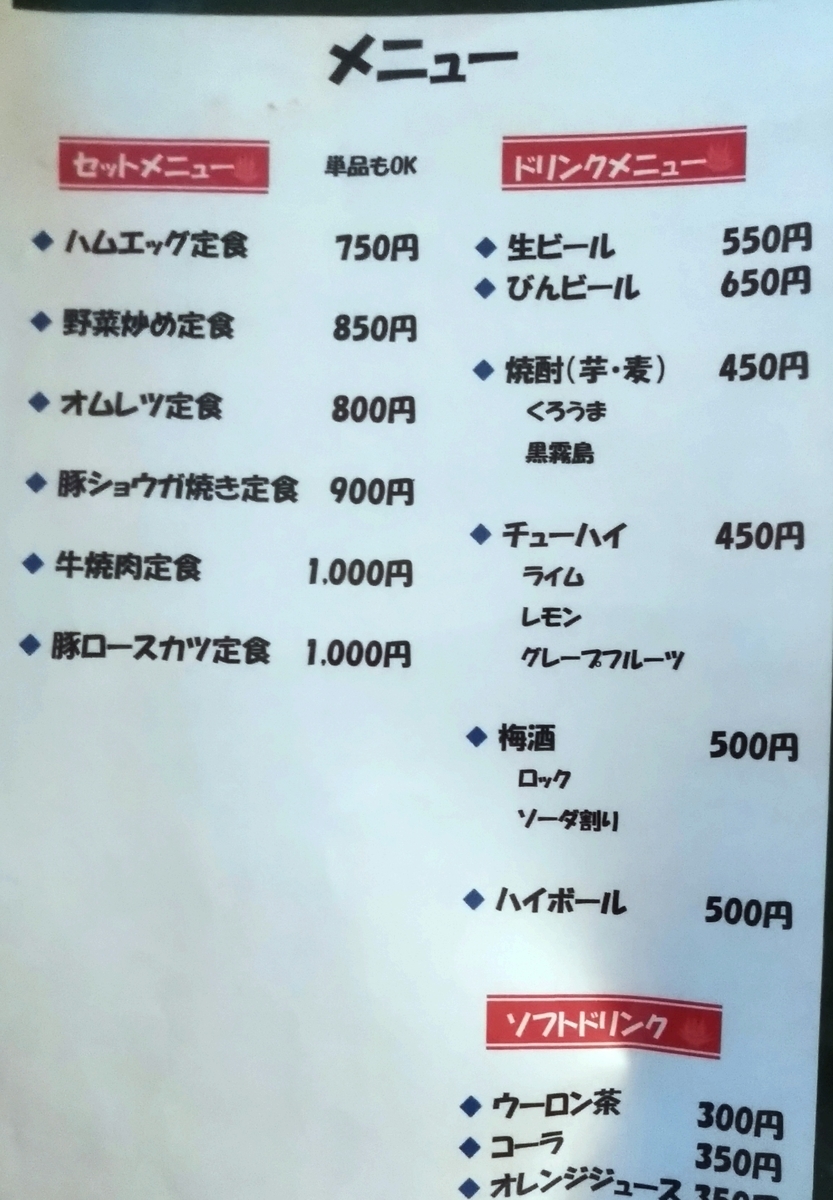 メニュー
セットメニュー 単品もOK
ハムエッグ定食 750円
野菜炒め定食 850円
オムレツ定食 800円
豚ショウガ焼き定食 900円
牛焼肉定食 1,000円
豚ロースカツ定食 1,000円
ドリンクメニュー
生ビール 550円
びんビール 650円
焼酎(芋・麦) 450円
くろうま
黒霧島
チューハイ 450円
ライム
レモン
グレープフルーツ
梅酒 500円
ロック
ソーダ割り
ハイボール 500円
ソフトドリンク
ウーロン茶 300円
コーラ 350円
オレンジジュース